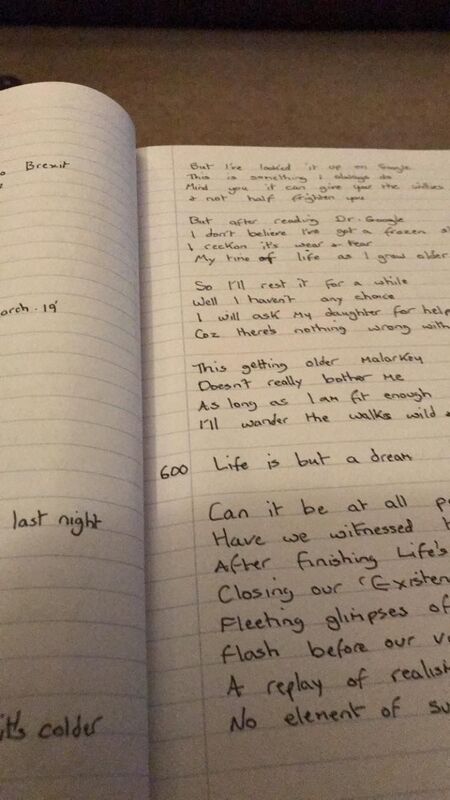 Brexit
arch.19'
last night
it's colder
But I've looked it up on Google
This is something I always do
Mind you it can give you the willies
+ not half frighten you
But after reading Dr. Google
I don't believe I've got a frozen s
I reckon it's wear + tear
My time of life as I grow older
So I'll rest it for a while
Well I haven't any choice
I will ask my daughter for help
Coz there's nothing wrong with
This getting older Malarkey
Doesn't really bother me
As long as I am fit enough
I'll wander the walks wild +
600 Life is but a dream
Can it be at all po
Have we witnessed t
After finishing Life's
Closing our "Existen
Fleeting glimpses of
flash before our v
A replay of realis
No element of su